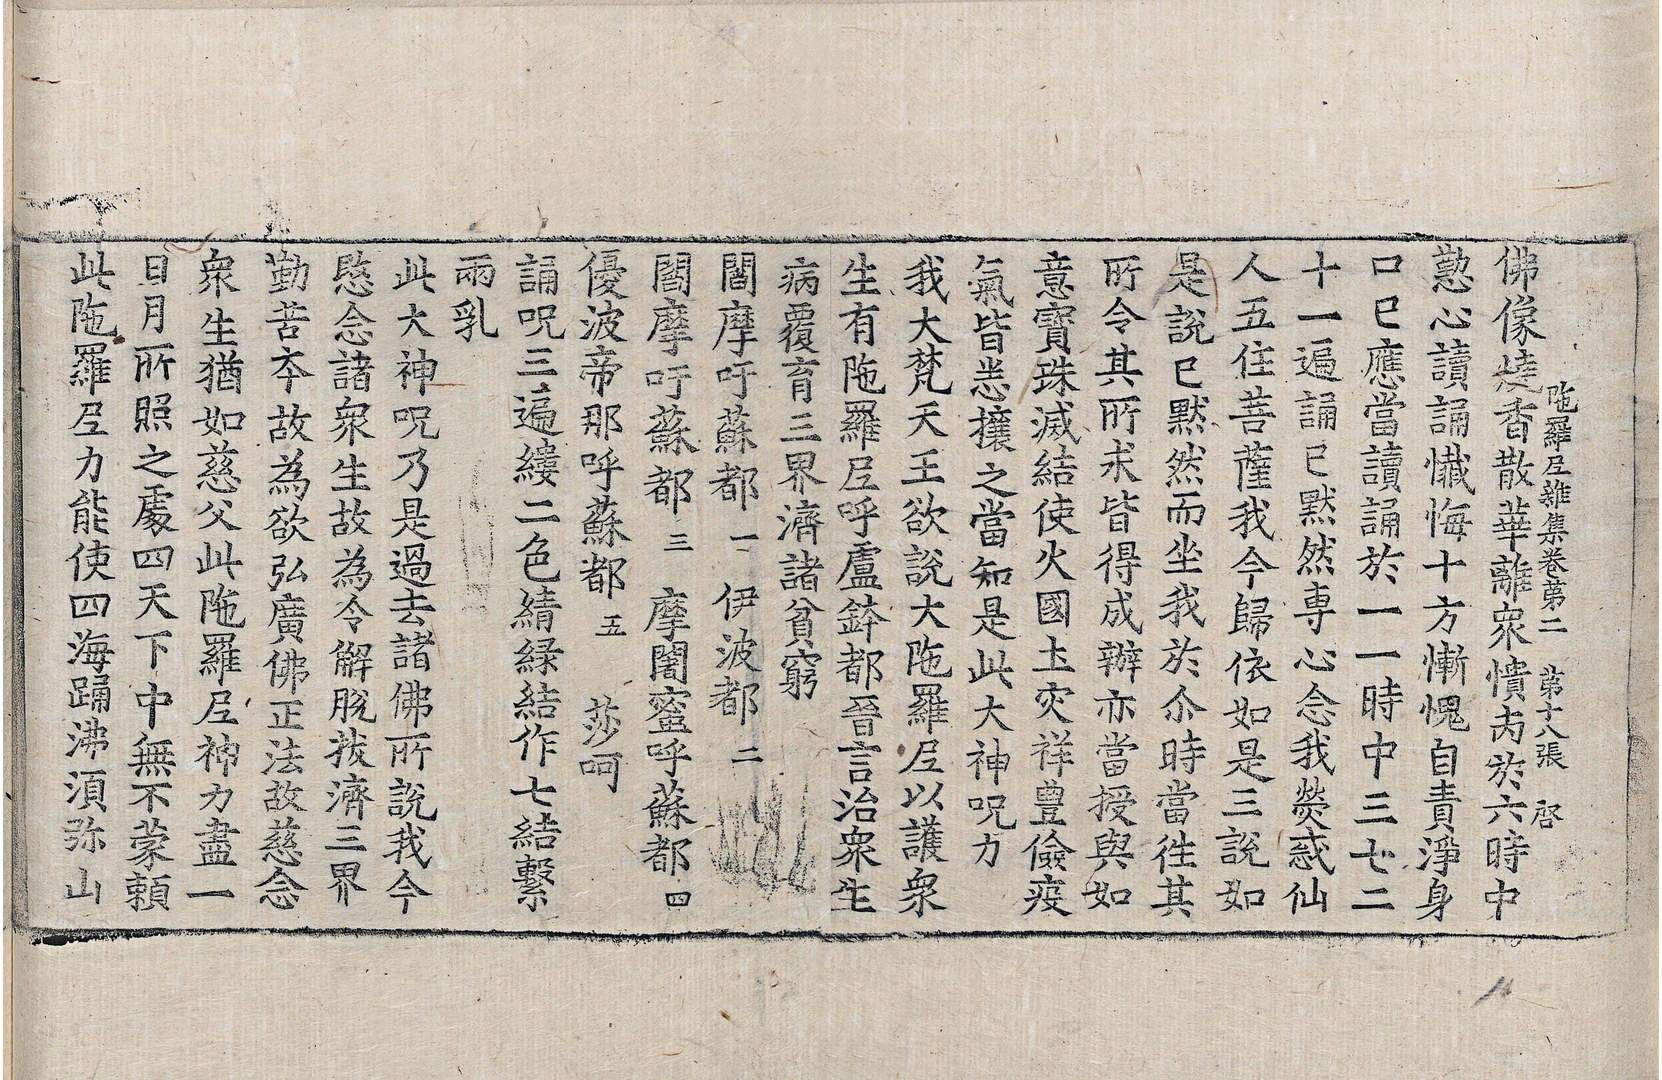 陁羅尼雜集卷第二　第十八張　啓
佛像燒香散華離衆憒丙於六時中
懃心讀誦懺悔十方慚愧自責淨身
口已應當讀誦於一一時中三七二
十一遍誦已默然専心念我熒惑仙
人五住菩薩我今歸依如是三說如
是說已默然而坐我於尒時當徃其
所令其所求皆得成辦亦當授與如
意寶珠滅結使火國土灾祥豊儉疫
氣皆悉攘之當知是此大神呪力
我大梵天王欲說大陁羅尼以護衆
生有陁羅尼呼盧鉢都晉言治衆生
病覆育三界濟諸貧窮
閻摩吁蘇都一　伊波都二
閻摩吁蘇都三　摩闍蜜呼蘇都四
優波帝那呼蘇都五　莎呵
誦呪三遍縷二色績綠結作七結繫
兩乳
此大神呪乃是過去諸佛所說我今
愍念諸衆生故為令解脫拔濟三界
勤苦夲故為欲弘廣佛正法故慈念
衆生猶如慈父此陁羅尼神力盡一
日月所照之處四天下中無不蒙賴
此陁羅尼力能使四海踊沸湏弥山